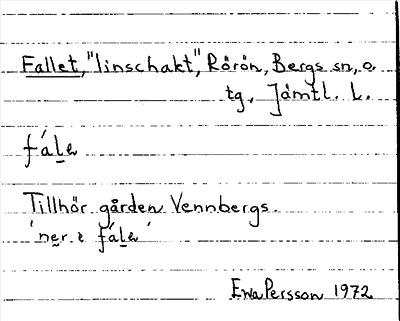 Fallet, "linschakt", Rörön, Bergs sn, o.
tg, Jämtl. L.
fá̀le
Tillhör gården Vennbergs.
'ner e fále'
Ewa Persson 1972